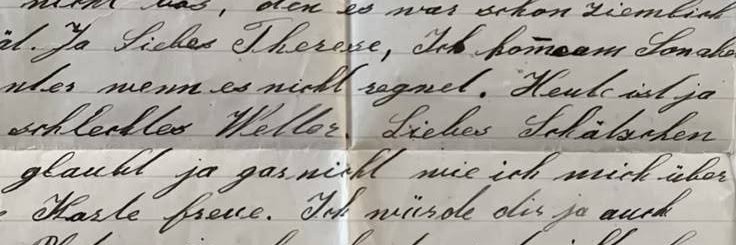 nicht bös, den es war schon ziemlich
ät. Ja Liebes Therese, Ich komm am Sonabe
nter wenn es nicht regnet. Heute ist ja
schlechtes Wetter. Liebes Schätzchen
glaubt ja gar nicht wie ich mich über
Karte freue. Ich würde dir ja auch